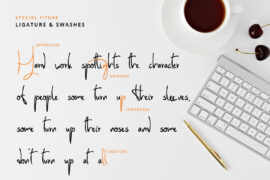 SPECIAL FITURE
LIGATURE & SWASHES
UPPERCASE
Hard work spotlights the character
SWASHES
of people some turn up their sleeves,
LOWERCASE
some turn up their noses and some
LIGATURE
don't turn up at all